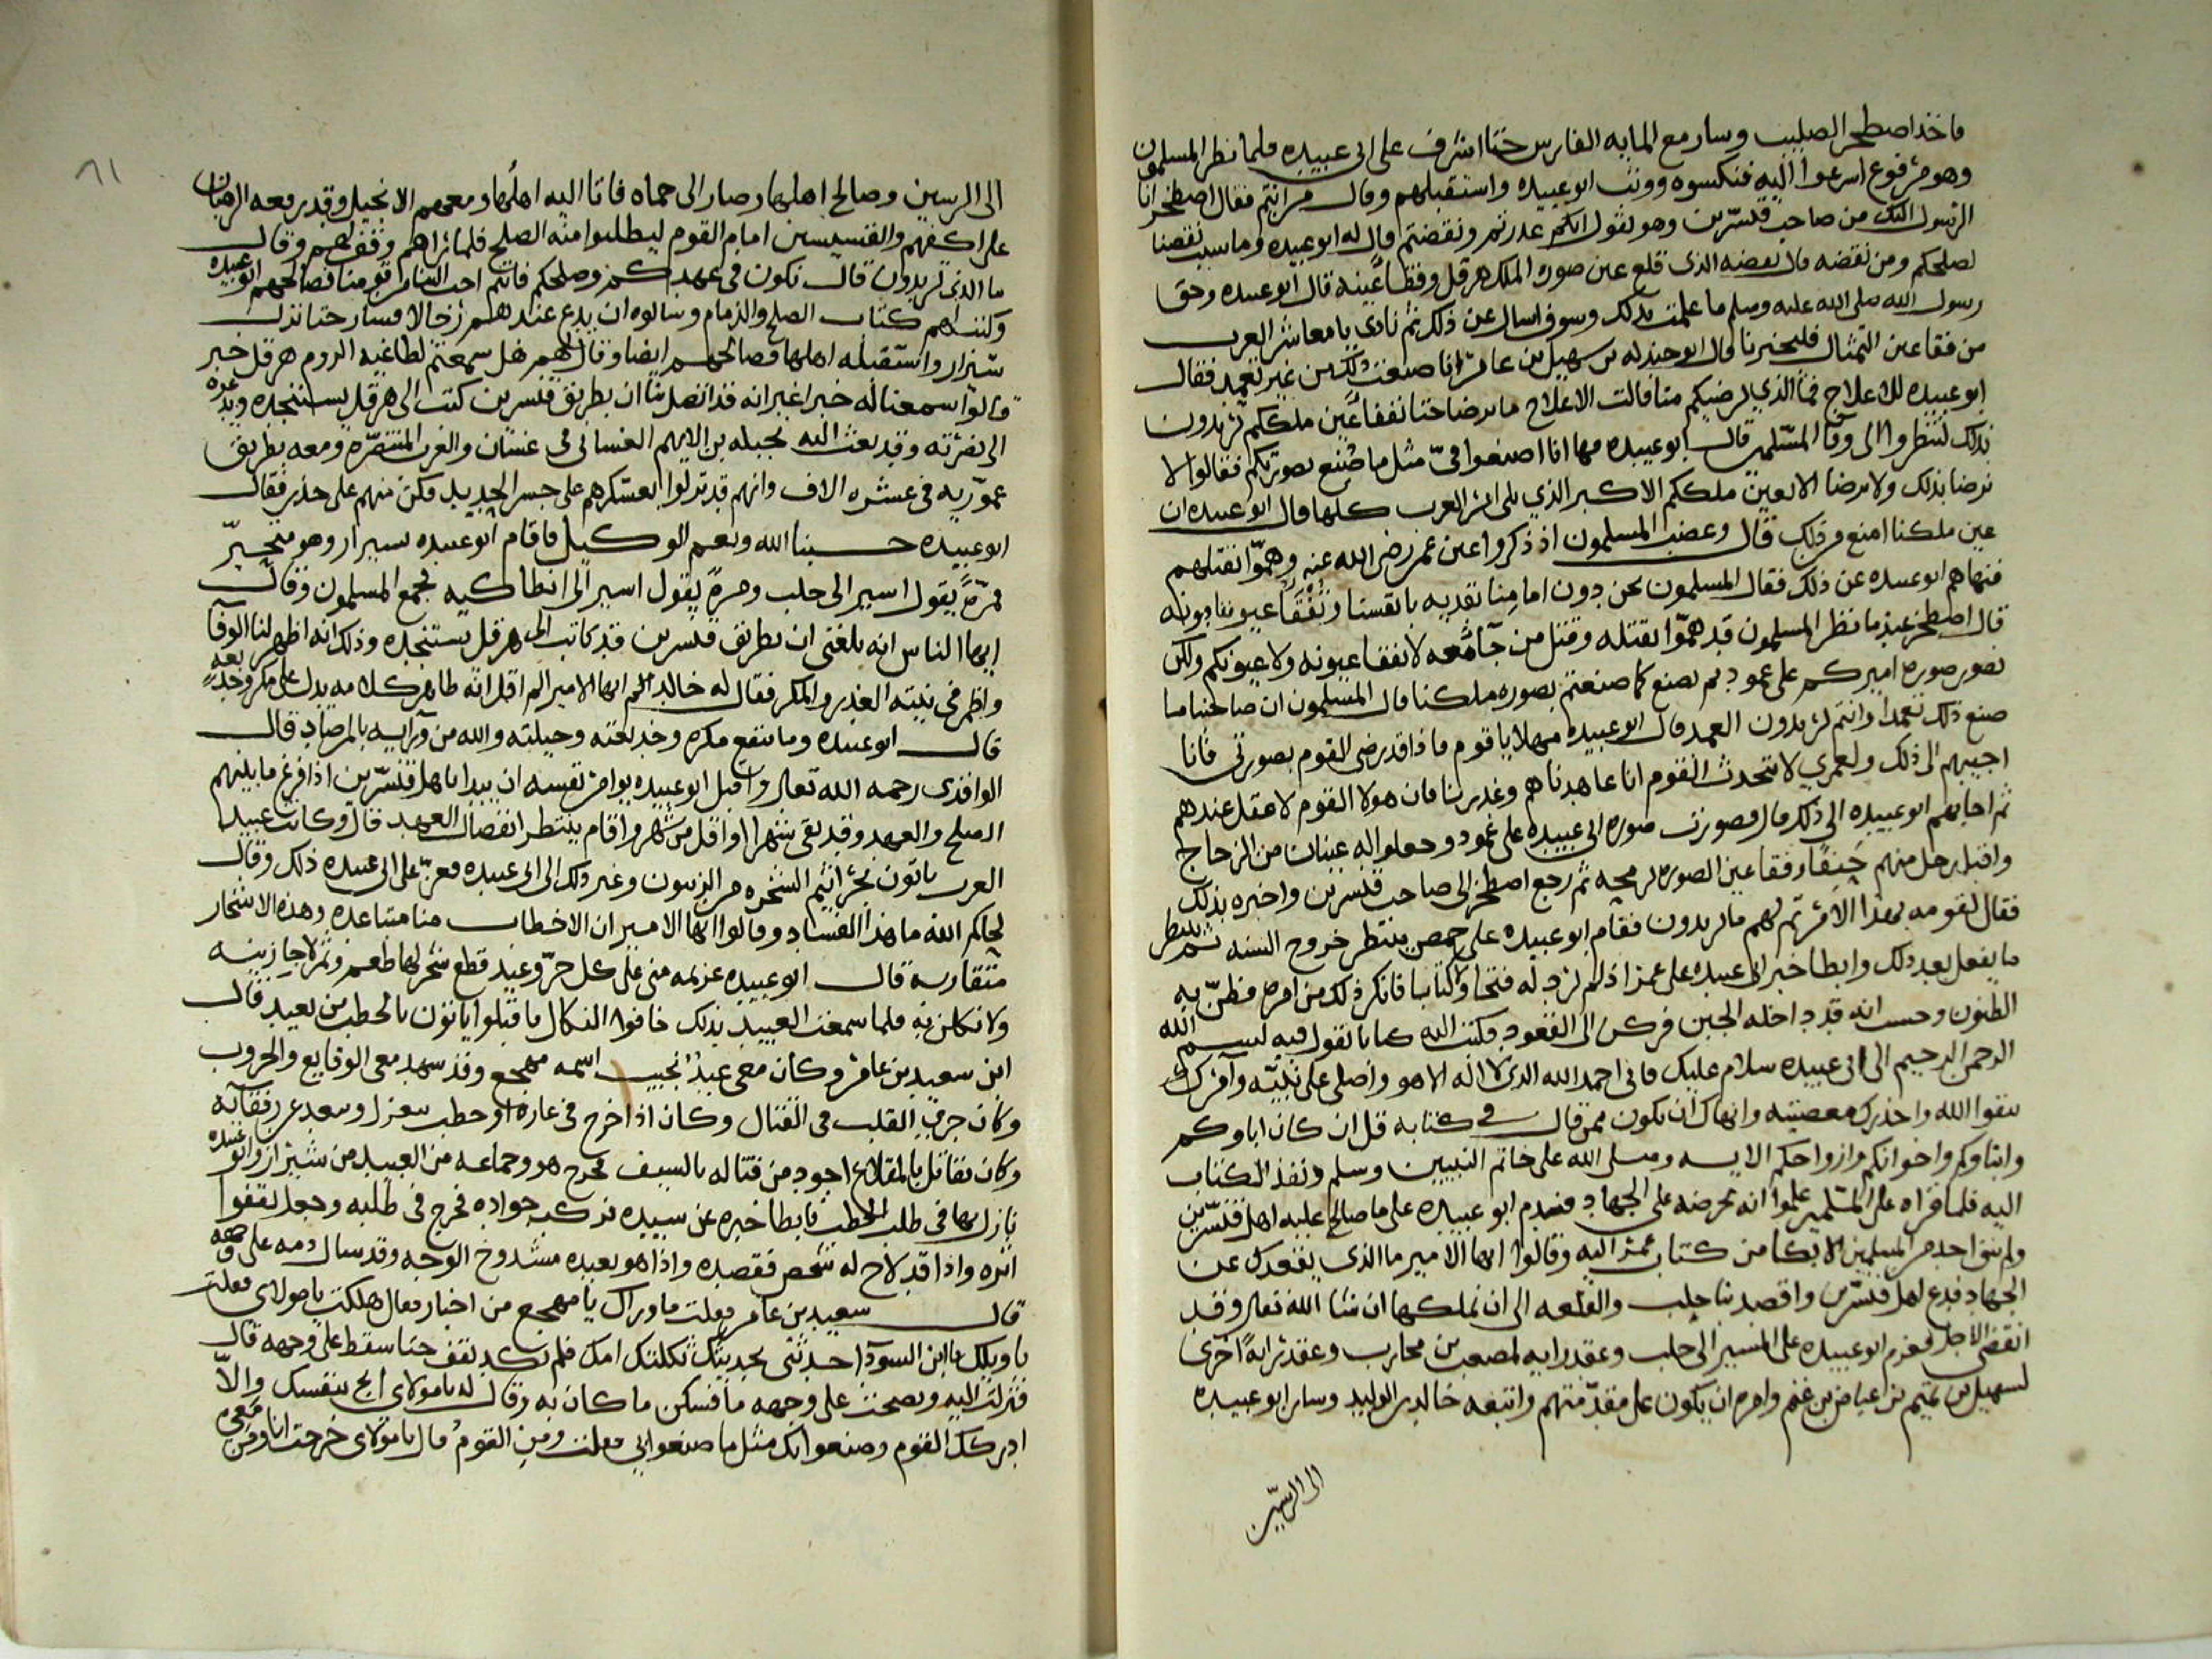 فاخذ اصطخر الصليب وسار مع المايه الفارس حتا اشرف على ابي عبيده فلما نظر المسلمون
وهو مرفوع اسرعوا اليه فنكسوه ووثب ابو عبيده واستقبلهم وقال من انتم فقال اصطخر انا
الرسول اليك من صاحب قنسرين وهو يقول انكم غدرتم ونقضتم قال له ابو عبيده وما سبب نقضنا
لصلحكم ومن نقضه قال نقضه الذى قلع عين صوره الملك هرقل وفقا عينه قال ابو عبيده وحق
رسول الله صلى الله عليه وسلم ما علمت بذلك وسوف اسال عن ذلك ثم نادى يا معاشر العرب
من فقا عين التمثال فليخبرنا قال ابو جندله بن سهيل بن عامر انا صنعت ذلك من غير تعمد فقال
ابو عبيده للاعلاج فما الذي يرضيكم منا فقالت الاعلاج ما نرضا حتا نفقا عين ملككم تريدون
بذلك لتنظروا الى وفا المسلمين قال ابو عبيده فها انا اصنعوا فيّ مثل ما صنع بصورتكم فقالوا لا
نرضا بذلك ولا نرضا الا بعين ملككم الاكبر الذي يلى امر العرب كلها قال ابو عبيده ان
عين ملكنا امنع من ذلك قال وغضب المسلمون اذ ذكروا عين عمر رضى الله عنه وهمّوا بقتلهم
فنهاهم ابو عبيده عن ذلك فقال المسلمون نحن دون امامنا نفديه بانفسنا ونفقا عيوننا دونه
قال اصطخر عندما نظر المسلمون قد همّوا بقتله وقتل من جا معه لا نفقا عيونه ولا عيونكم ولكن
نصور صوره اميركم على عمود ثم نصنع كما صنعتم بصوره ملكنا قال المسلمون ان صاحبنا ما
صنع ذلك تعمدا وانتم تريدون العمد قال ابو عبيده مهلا يا قوم فاذا قد رضى القوم بصورتى فانا
اجيبهم الى ذلك ولعمري لا تتحدث القوم انا عاهدناهم وغدرنا فان هولا القوم لا عقل عندهم
ثم اجابهم ابو عبيده الى ذلك قال فصورت صوره ابى عبيده على عمود وجعلوا له عينان من الزجاج
واقبل رجل منهم حنقا وفقا عين الصوره برمحه ثم رجع اصطخر الى صاحب قنسرين واخبره بذلك
فقال لقومه بهذا الامر تم لهم ما يريدون فقام ابو عبيده على حمص ينتظر خروج السنه ثم ينظر
ما يفعل بعد ذلك وابطا خبر ابى عبيده على عمر اذ لم يرد له فتحا ولا كتابا فانكر ذلك من امره فظنّ به
الظنون وحسب انه قد داخله الجبن فركن الى القعود فكتب اليه كتابا يقول فيه بسم الله
الرحمن الرحيم الى ابى عبيده سلام عليك فانى احمد الله الذى لا اله الا هو واصلى على نبيّه وآمرك
بتقوا الله واحذرك معصيته وانهاك ان تكون ممن قال فى كتابه قل ان كان اباوكم
وابناوكم واخوانكم وازواجكم الايه وصلى الله على خاتم النبيين وسلم ونفذ الكتاب
اليه فلما قراه على المسلمين علموا انه يحرضه على الجهاد فندم ابو عبيده على ما صالح عليه اهل قنسرين
ولم يبق احد من المسلمين الا بكا من كتاب عمر اليه وقالوا ايها الامير ما الذى يقعدك عن
الجهاد فدع اهل قنسرين واقصد بنا حلب والقلعه الى ان نملكها ان شا الله تعالى وقد
انقضى الاجل فعزم ابو عبيده على المسير الى حلب وعقد رايه لمصعب بن محارب وعقد رايةً اخرى
لسهيل بن تميم بن عياض بن غنم وامره ان يكون على مقدمتهم واتبعه خالد بن الوليد وسار ابو عبيده
الى الرستين
٦١
الى الرستين وصالح اهلها وصار الى حماه فاتا اليه اهلها ومعهم الانجيل وقد رفعه الرهبان
على اكفهم والقسيسين امام القوم ليطلبوا منه الصلح فلما راهم وقف لهم وقال
ما الذي تريدون قال نكون في عهدكم وصلحكم فانتم احب الينا من قومنا فصالحهم ابو عبيده
وكتب لهم كتاب الصلح والذمام وسالوه ان يدع عندهم رجالا فسار حتا نزل
شيزار واستقبله اهلها فصالحهم ايضا وقال لهم هل سمعتم لطاغيه الروم هرقل خبر
قالوا سمعنا له خبرا غير انه قد اتصل بنا ان بطريق قنسرين كتب الى هرقل يستنجده ويدعوه
الى نصرته وقد بعث اليه بجبله بن الايهم الغسانى فى غسان والعرب المتنصّره ومعه بطريق
عموريه في عشره الاف وانهم قد نزلوا بعسكرهم على جسر الحديد فكن منهم على حذر فقال
ابو عبيده حسبنا الله ونعم الوكيل فاقام ابو عبيده بسيرار وهو متحيّر
فمرّةً يقول اسير الى حلب ومرةً يقول اسير الى انطاكيه فجمع المسلمون وقال
ايها الناس انه بلغنى ان بطريق قنسرين قد كاتب الى هرقل يستنجده وذلك انه اظهر لنا الوفا
واظهر فى نيته الغدر والمكر فقال له خالد ايها الامير الم اقل انه ظاهر كلامه يدل على مكره وخدعه
قال ابو عبيده وما ينفع مكره وخديعته وحيلته والله من ورايه بالمرصاد قال
الواقدى رحمه الله تعالى واقبل ابو عبيده يوامر نفسه ان يبدا باهل قنسرين اذا فرغ ما بينهم
الصلح والعهد وقد بقى شهرا او اقل من شهر واقام ينتظر انفصال العهد قال وكانت عبيد
العرب ياتون بجراثيم الشجره من الزيتون وغير ذلك الى ابى عبيده فعزّ على ابى عبيده ذلك وقال
لحاكم الله ما هذا الفساد وقالوا ايها الامير ان الاخطاب منا متباعده وهذه الاشجار
متقاربه قال ابو عبيده عزيمه منى على كل حرّ وعبد قطع شجر لها طعم وثمر لاجازينه
ولانكلن به فلما سمعت العبيد بذلك خافوا النكال فاقبلوا ياتون بالحطب من بعيد قال
ابن سعيد بن عامر وكان معى عبدٌ نجيب اسمه مهجع وقد شهد معى الوقايع والحروب
وكان جرى القلب فى القتال وكان اذا خرج فى غاره او حطب ينعزل ويبعد عن رفقايه
وكان يقاتل بالمقلاع اجود من قتاله بالسيف فخرج هو وجماعه من العبيد من شيزار وابو عبيده
نازل بها فى طلب الحطب فابطا خبره عن سيده فركب جواده فخرج فى طلبه وجعل يقفوا
اثره واذا قد لاح له شخص فقصده واذا هو بعبده مشدوخ الوجه وقد سال دمه على وجهه
قال سعيد بن عامر فقلت ما وراك يا مهجع من اخبار فقال هلكت يا مولاى فقلت
يا ويلك يا ابن السودا حدثنى بحديثك ثكلتك امك فلم يكد يقف حتا سقط على وجهه قال
فنزلت اليه ونضحت على وجهه ما فسكن ما كان به وقال له يا مولاى انج بنفسك والّا
ادركك القوم وصنعوا بك مثل ما صنعوا بى فقلت ومن القوم قال يا مولاى خرجت انا ومن معى